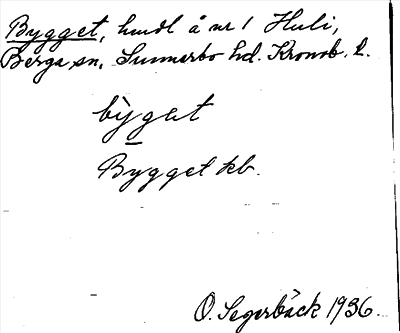 Bygget, hmdl å nr 1 Huli,
Berga sn, Sunnerbo hd. Kronob. l.
bỳgat
Bygget kb.
O. Segerbäck 1936.